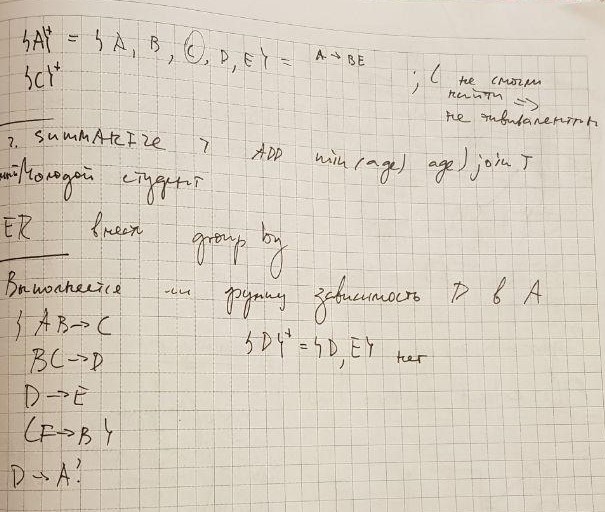 {A}⁺ = { A, B, C, D, E } = A → BE
{C}⁺
; ( не смогли
найти =>
не эквивалентны
?. SUMMARIZE T ADD min(age) age) join T
молодой студент
ER вместо group by
Выполняется ли функц зависимость D в A
{ AB → C
BC → D
D → E
CE → B }
D → A?
{D}⁺ = {D, E} нет